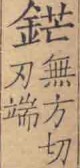 鋩
無方切
刃端